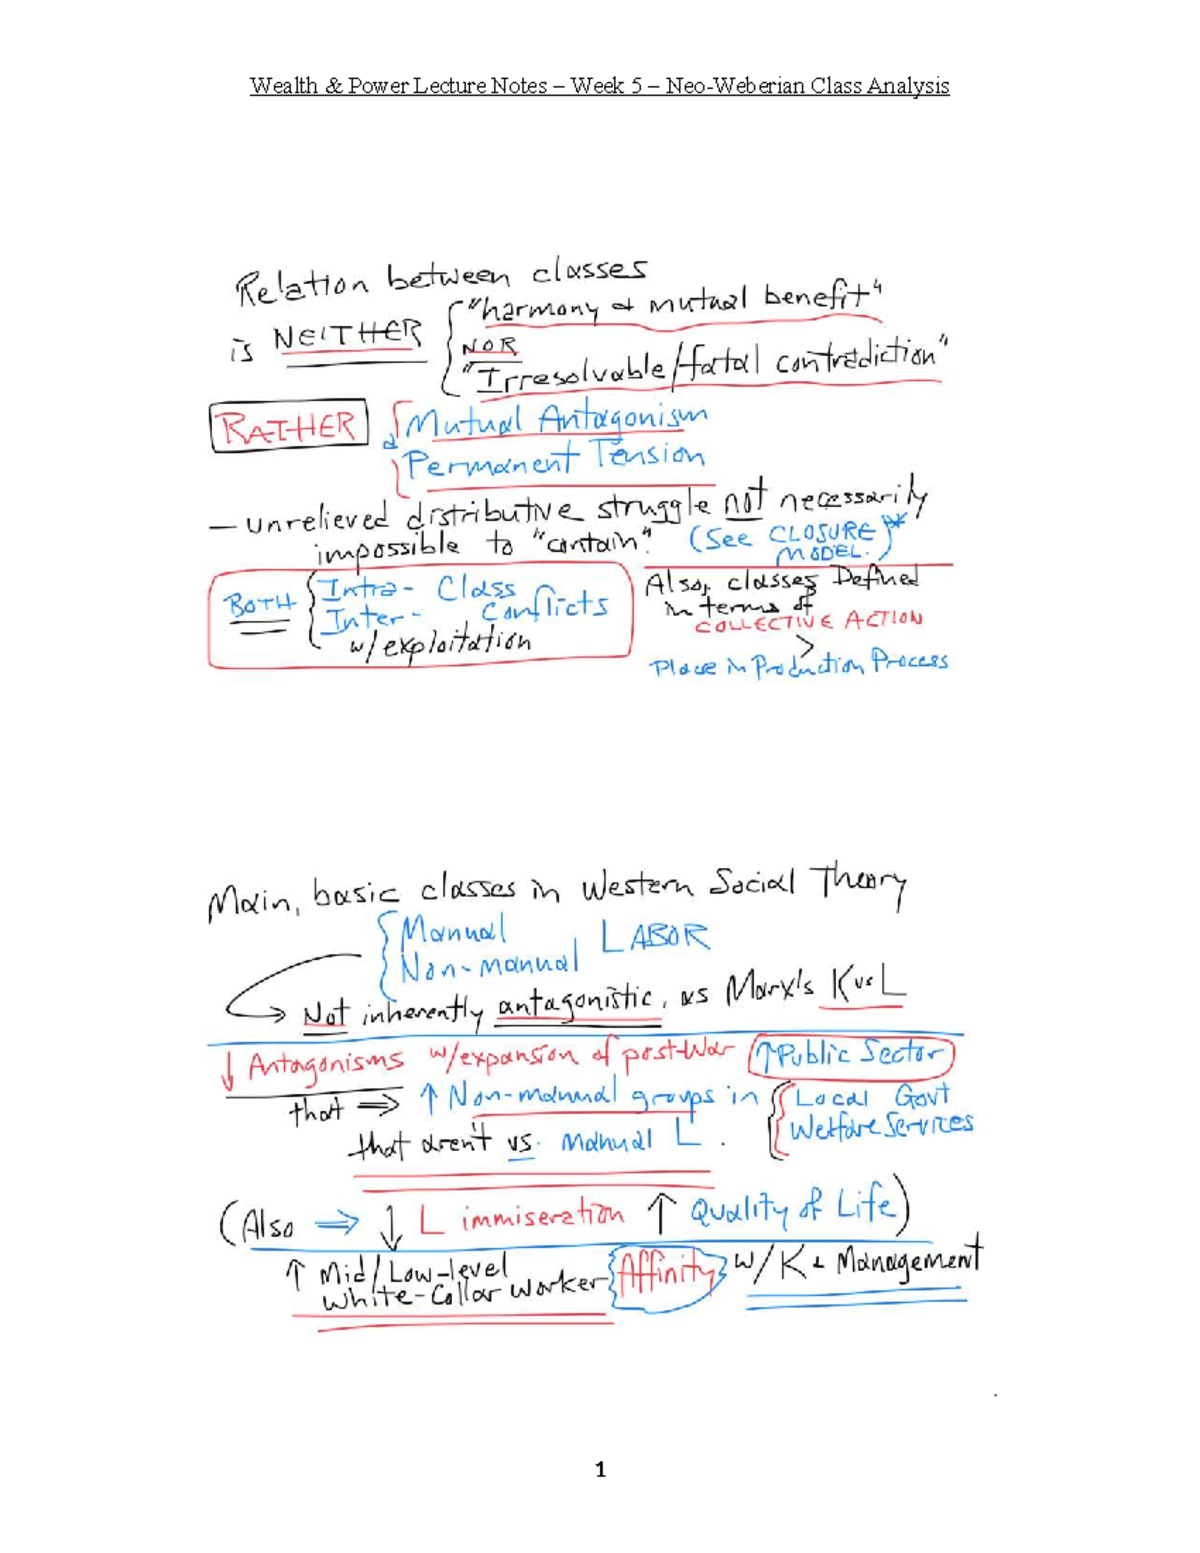 Wealth & Power Lecture Notes – Week 5 – Neo-Weberian Class Analysis
Relation between classes
is NEITHER { "harmony & mutual benefit"
NOR
"Irresolvable/fatal contradiction"
RATHER { Mutual Antagonism
Permanent Tension
— unrelieved distributive struggle not necessarily
impossible to "contain". (See CLOSURE MODEL.)*
BOTH { Intra- Class
Inter- Conflicts
w/exploitation
Also, classes Defined
in terms of
COLLECTIVE ACTION
>
Place in Production Process
Main, basic classes in Western Social Theory
{ Manual
Non-manual LABOR
→ Not inherently antagonistic, as Marx's K vs L
↓ Antagonisms w/expansion of post-War ↑Public Sector
that ⇒ ↑ Non-manual groups in { Local Govt
Welfare Services
that aren't vs. manual L.
(Also ⇒ ↓ L immiseration ↑ Quality of Life)
↑ Mid/Low-level
White-Collar Worker Affinity w/K & Management
1